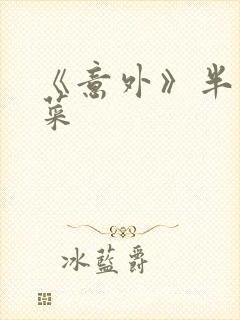 《意外》半
菜
冰藍爵